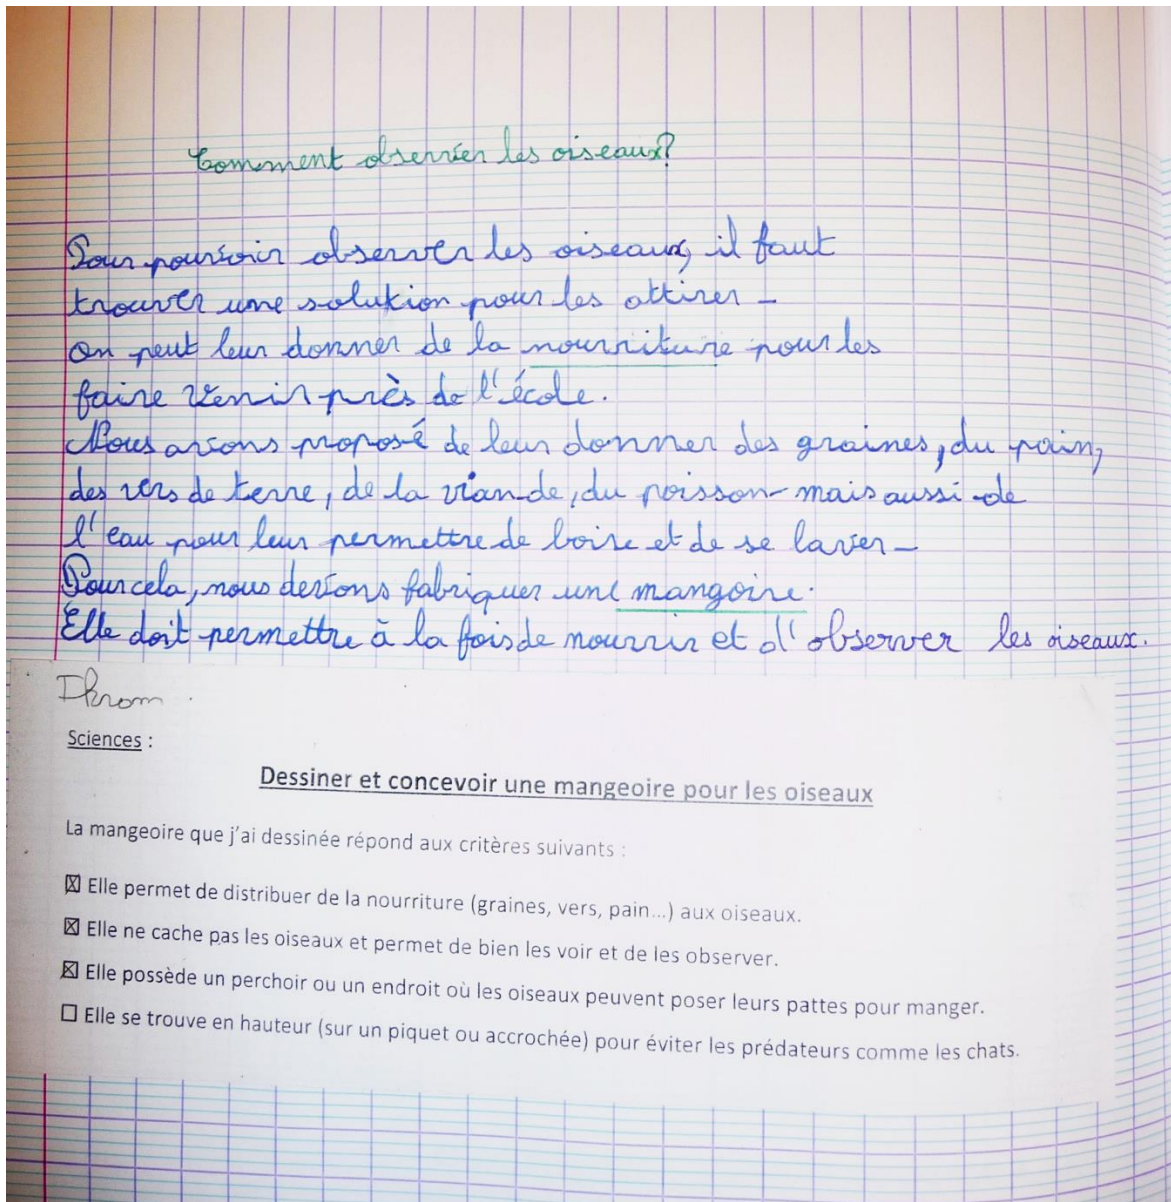 Comment observer les oiseaux?
Pour pouvoir observer les oiseaux, il faut
trouver une solution pour les attirer -
On peut leur donner de la nourriture pour les
faire venir près de l'école.
Nous avons proposé de leur donner des graines, du pain,
des vers de terre, de la viande, du poisson - mais aussi de
l'eau pour leur permettre de boire et de se laver -
Pour cela, nous devons fabriquer une mangoire.
Elle doit permettre à la fois de nourrir et d'observer les oiseaux.
Ikrom.
Sciences :
Dessiner et concevoir une mangeoire pour les oiseaux
La mangeoire que j'ai dessinée répond aux critères suivants :
☒ Elle permet de distribuer de la nourriture (graines, vers, pain...) aux oiseaux.
☒ Elle ne cache pas les oiseaux et permet de bien les voir et de les observer.
☒ Elle possède un perchoir ou un endroit où les oiseaux peuvent poser leurs pattes pour manger.
☐ Elle se trouve en hauteur (sur un piquet ou accrochée) pour éviter les prédateurs comme les chats.